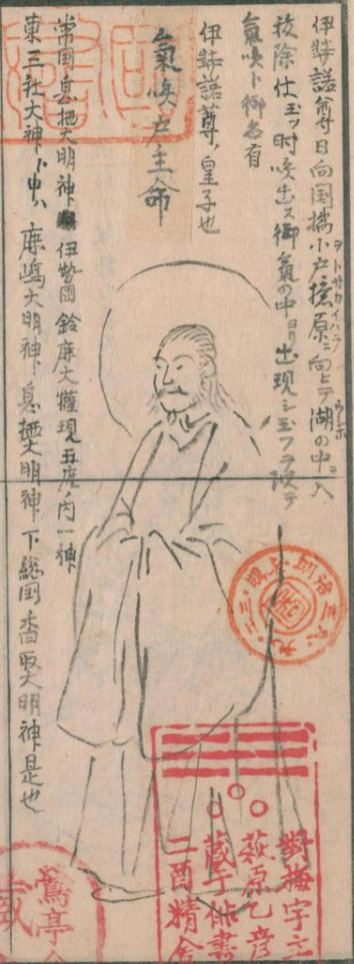 伊弉諾尊日向国橘小戸檍原ニ向ヒテ湖の中ニ入
ヲトサカイハラ
ウシホ
祓除仕玉フ時吹出ス御氣の中ヨリ出現シ玉フヲ以テ
氣吹ト御名有
伊弉諾尊ノ皇子也
氣吹戸主命
常国息栖大明神 伊勢国鈴鹿大権現五座ノ内一神
東三社大神ト申ハ 鹿嶋大明神 息栖大明神 下総国香取大明神是也
萩原乙彦
蔵于俳書
二酉精舎
鶯亭